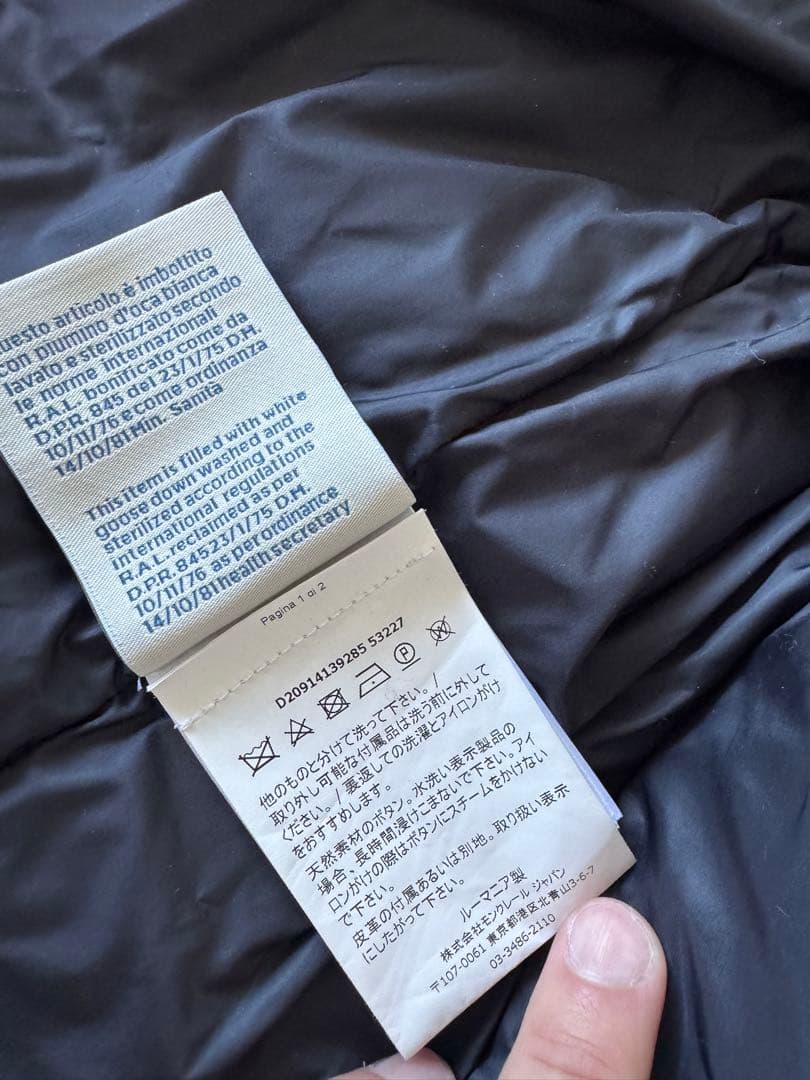 uesto articolo è imbottito
con piumino d'oca bianca
lavato e sterilizzato secondo
le norme internazionali
R.A.L. bonificato come da
D.P.R. 845 del 23/1/75 D.M.
10/11/76 e come ordinanza
14/10/81 Min. Sanità
This item is filled with white
goose down washed and
sterilized according to the
international regulations
R.A.L. reclaimed as per
D.P.R. 845 23/1/75 D.M.
10/11/76 as per ordinance
14/10/81 health secretary
Pagina 1 di 2
D20914139285 53227
他のものと分けて洗って下さい。/
取り外し可能な付属品は洗う前に外して
ください。/ 裏返しての洗濯とアイロンがけ
をおすすめします。
天然素材のボタン。水洗い表示製品の
場合、長時間浸けこまないで下さい。アイ
ロンがけの際はボタンにスチームをかけない
で下さい。
皮革の付属あるいは別地。取り扱い表示
にしたがって下さい。
ルーマニア製
株式会社モンクレール ジャパン
〒107-0061 東京都港区北青山3-6-7
03-3486-2110